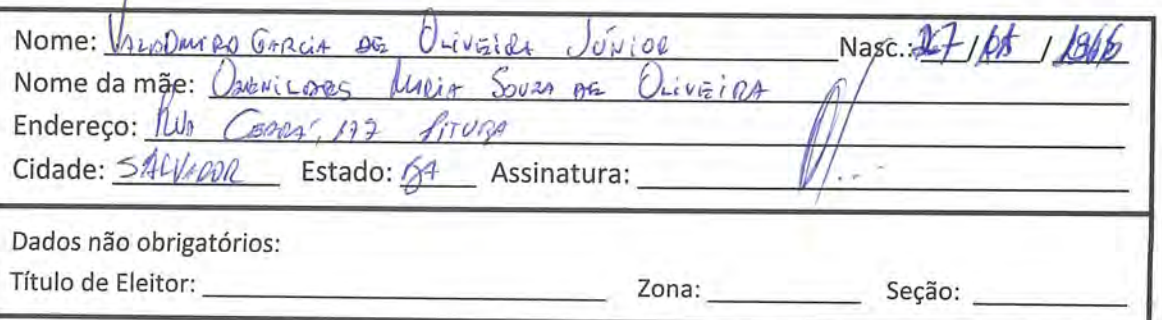 Nome: VALODMIRO GARCIA DE OLIVEIRA JÚNIOR Nasc.: 27 / /
Nome da mãe: MARIA SOUZA DE OLIVEIRA
Endereço: RUA CEARÁ, PITUBA
Cidade: SALVADOR Estado: BA Assinatura:
Dados não obrigatórios:
Título de Eleitor: Zona: Seção: